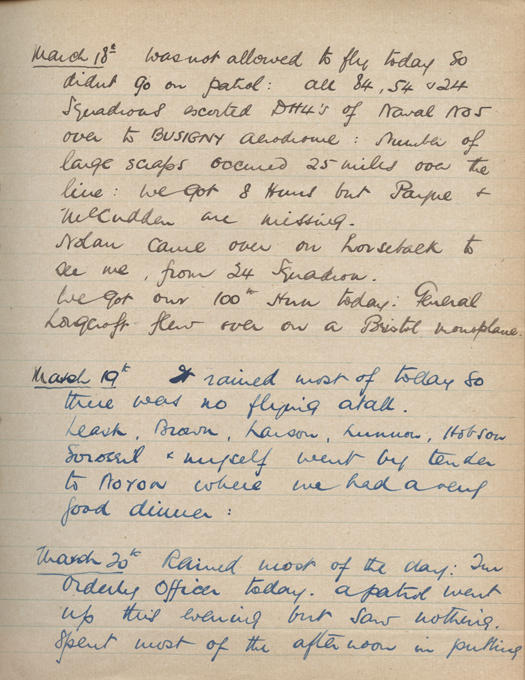 March 18th was not allowed to fly today so
didnt go on patrol: all 84, 54 & 24
Squadrons escorted DH4's of Naval No5
over to BUSIGNY aerodrome: Number of
large scraps occured 25 miles over the
line: we got 8 Huns but Payne &
McCudden are missing.
Nolan came over on horseback to
see me, from 24 Squadron.
We got our 100th Hun today: General
Longcroft flew over on a Bristol monoplane.
March 19th It rained most of today so
there was no flying atall.
Leask, Brown, Larson, Hobson
& myself went by tender
to Noyon where we had a very
good dinner:
March 20th Rained most of the day: Im
Orderly Officer today. a patrol went
up this evening but saw nothing.
Spent most of the afternoon in putting